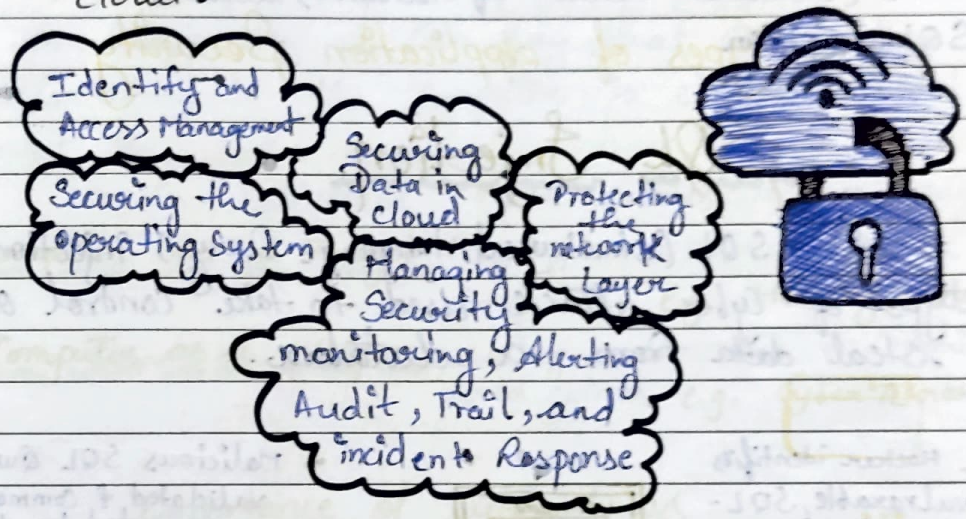 Identify and
Access Management
Securing the
operating System
Securing
Data in
cloud
Protecting
the
network
Layer
Managing
Security
monitoring, Alerting
Audit, Trail, and
incident Response